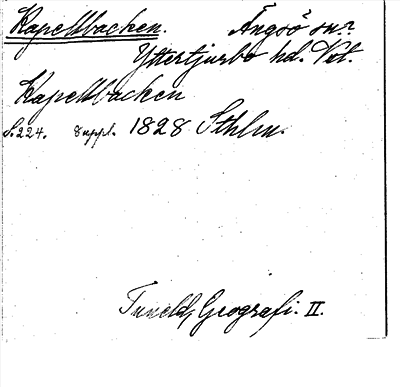 Kapellbacken. Ängsö sn?
Yttertjurbo hd. Vstl.
Kapellbacken
S. 224. 8 uppl. 1828 Sthlm.
Tuneld, Geografi. II.